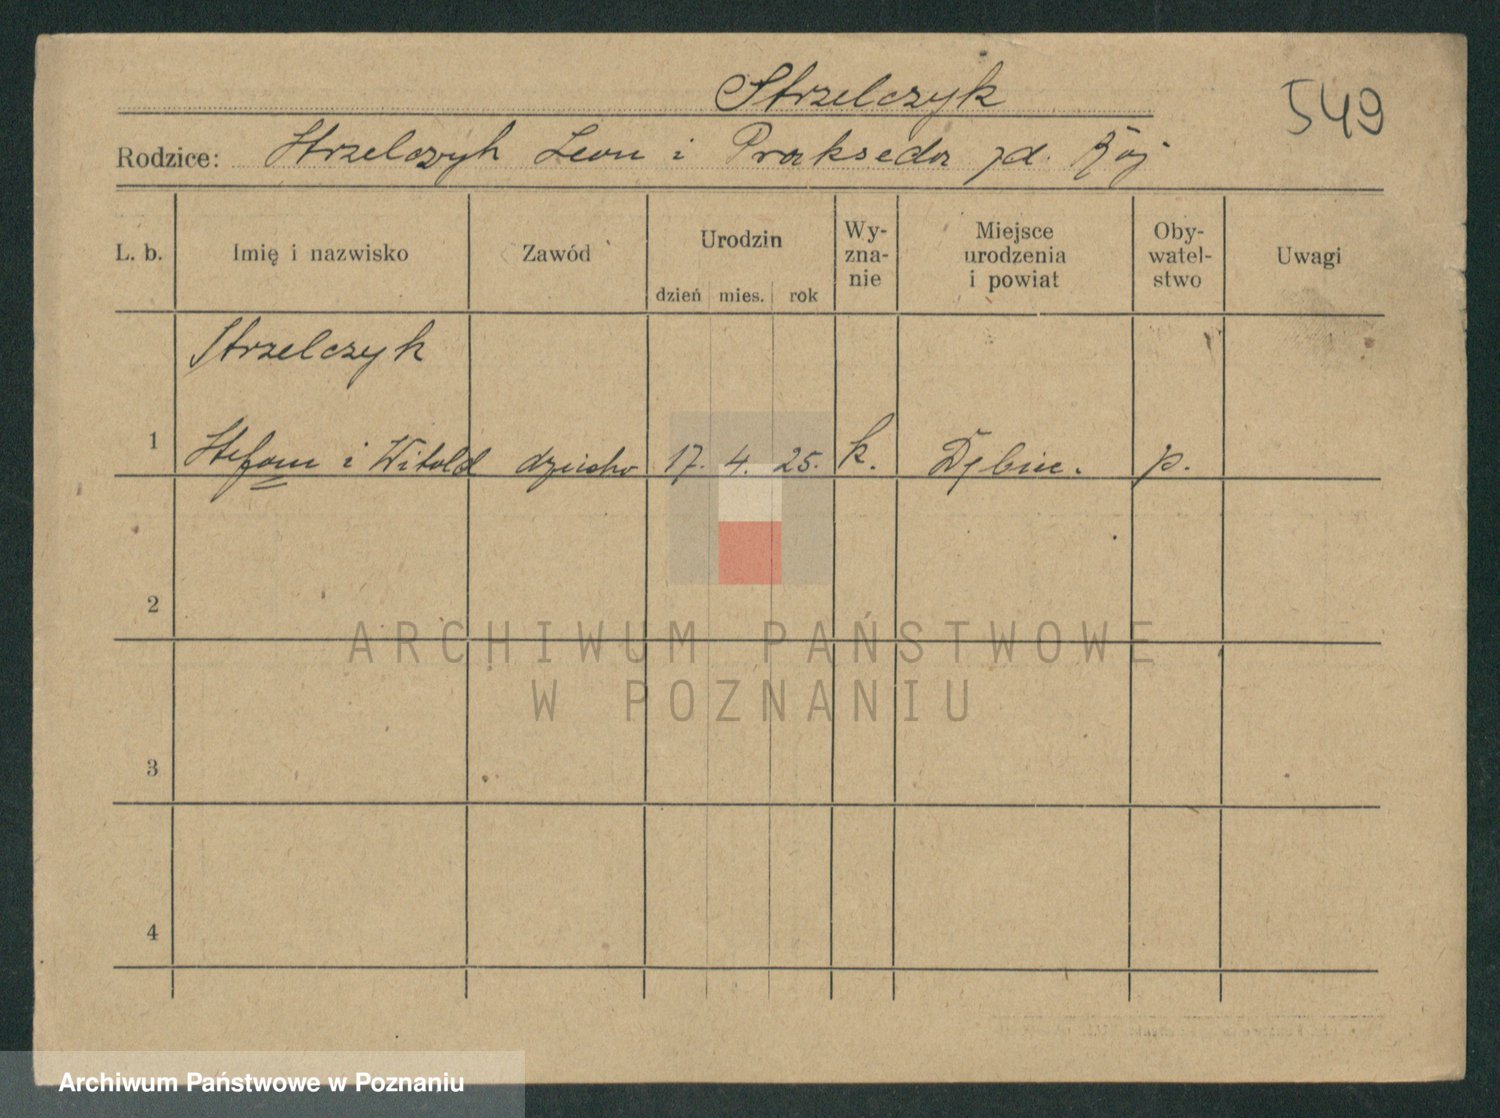 Strzelczyk
549
Rodzice: Strzelczyk Leon i Prakseda zd. Rój
L. b. Imię i nazwisko Zawód Urodzin dzień mies. rok Wy-zna-nie Miejsce urodzenia i powiat Oby-watel-stwo Uwagi
Strzelczyk
1 Stefan i Witold dziecko 17. 4. 25. k. Dębiec. p.
2
ARCHIWUM PAŃSTWOWE
W POZNANIU
3
4
Archiwum Państwowe w Poznaniu